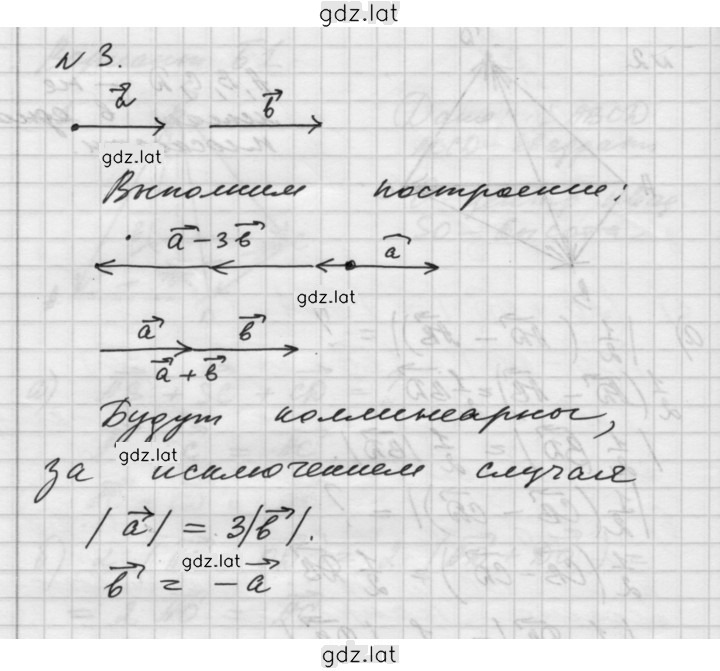 gdz.lat
№ 3.
a⃗ b⃗
gdz.lat
Выполним построение:
a⃗ − 3b⃗ a⃗
gdz.lat
a⃗ b⃗
a⃗ + b⃗
Будут коллинеарны,
gdz.lat
за исключением случая
|a⃗| = 3|b⃗|.
gdz.lat
b⃗ = −a⃗
gdz.lat